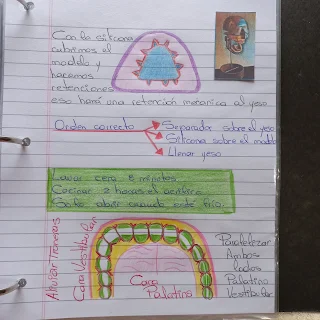 Con la silicona
cubrimos el
modelo y
hacemos
retenciones
eso hará una retención mecanica al yeso
Orden correcto
Separador sobre el yeso
Silicona sobre el modelo
Llenar yeso
Lavar cera 5 minutos
Cocinar 2 horas el acrílico
Solo abrir cuando esté frío.
Cara Vestibular
Cara
Palatino
Paralelizar
Ambos
lados
Palatino
Vestibular